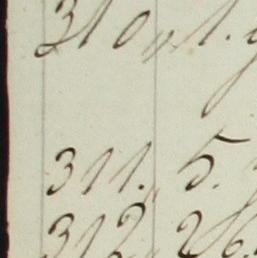 310 „ 1.
311. „ 5.
312 „ 26.